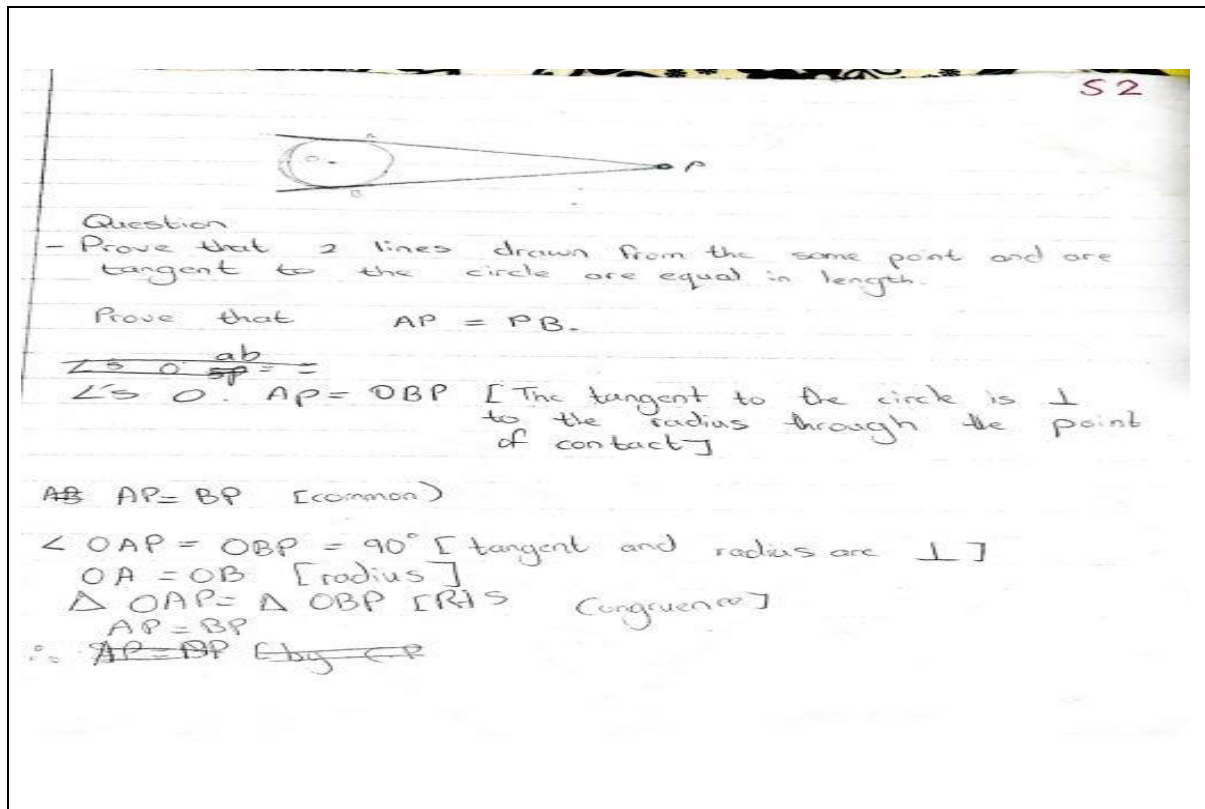 S 2
A
O
P
B
Question
- Prove that 2 lines drawn from the same point and are
tangent to the circle are equal in length.
Prove that AP = PB.
∠s O ab = =
∠'s O. AP = OBP [The tangent to the circle is ⊥
to the radius through the point
of contact]
AB AP = BP [common)
∠ OAP = OBP = 90° [tangent and radius are ⊥]
OA = OB [radius]
△ OAP = △ OBP [RHS Congruence]
AP = BP
∴ AP = BP [by CP